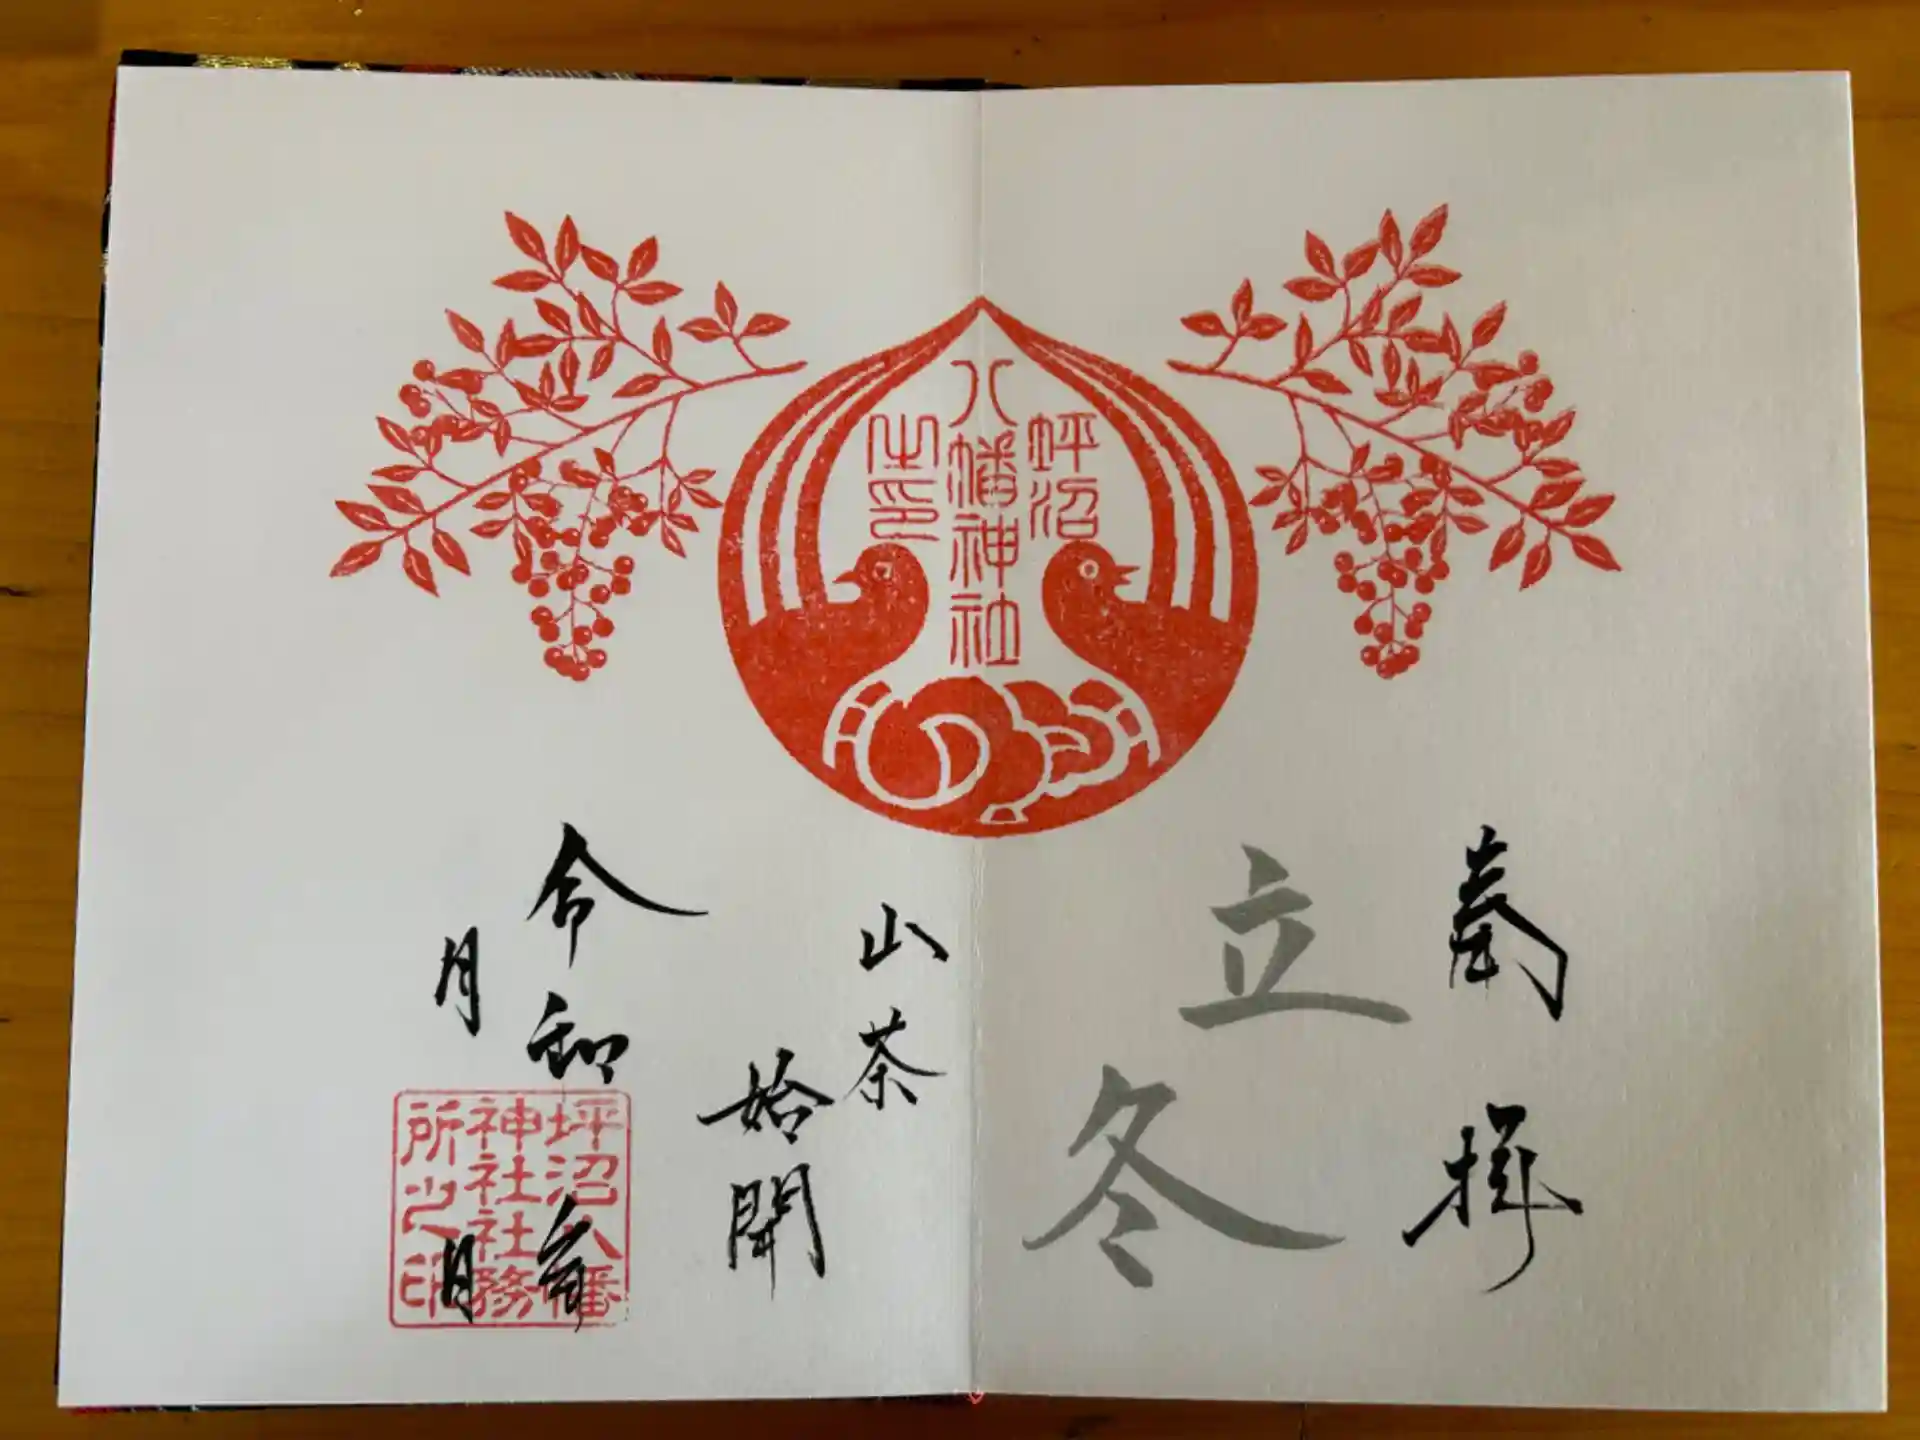 奉拝
立冬
山茶
始開
令和 年
月 日
坪沼
八幡神社
之印
坪沼八幡
神社社務
所之印